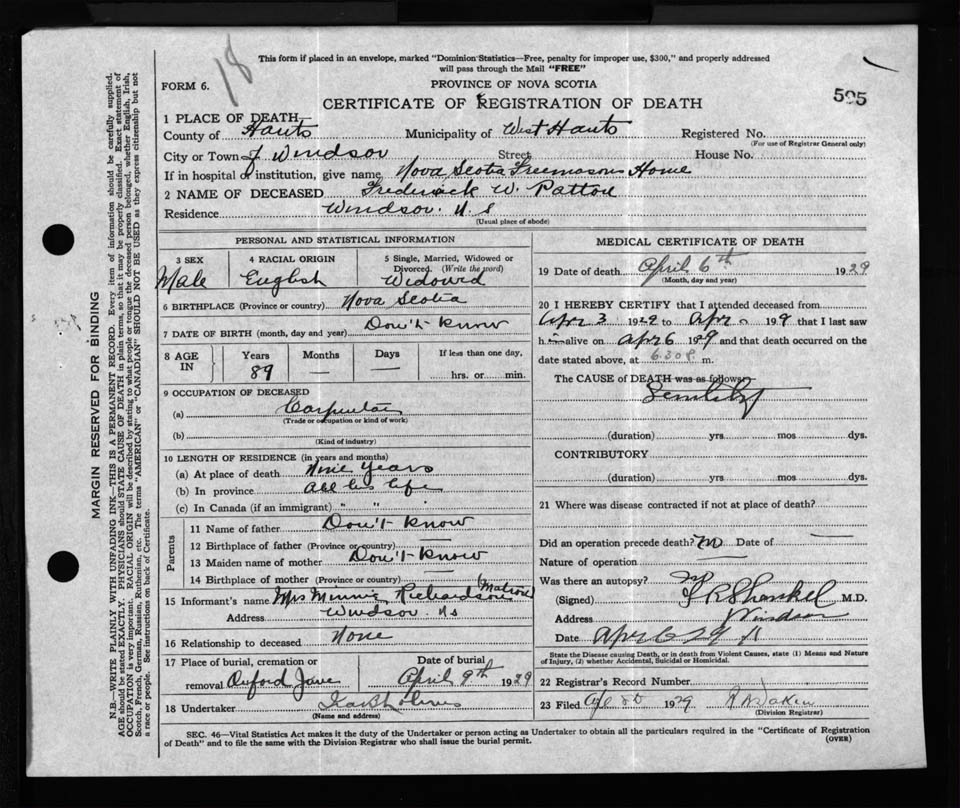 18
This form if placed in an envelope, marked "Dominion Statistics—Free, penalty for improper use, $300," and properly addressed
will pass through the Mail "FREE"
FORM 6.
PROVINCE OF NOVA SCOTIA
595
CERTIFICATE OF REGISTRATION OF DEATH
1 PLACE OF DEATH
County of Hants Municipality of West Hants Registered No.
(For use of Registrar General only)
City or Town of Windsor Street House No.
If in hospital or institution, give name Nova Scotia Freemasons Home
2 NAME OF DECEASED Frederick W. Patton
Residence Windsor. N. S
(Usual place of abode)
PERSONAL AND STATISTICAL INFORMATION
3 SEX 4 RACIAL ORIGIN 5 Single, Married, Widowed or
Divorced. (Write the word)
Male English Widowed
6 BIRTHPLACE (Province or country) Nova Scotia
7 DATE OF BIRTH (month, day and year) Don't know
8 AGE IN Years Months Days If less than one day,
89 — — hrs. or min.
9 OCCUPATION OF DECEASED
(a) Carpenter
(Trade or occupation or kind of work)
(b)
(Kind of industry)
10 LENGTH OF RESIDENCE (in years and months)
(a) At place of death Nine years
(b) In province All his life
(c) In Canada (if an immigrant) " "
Parents
11 Name of father Don't know
12 Birthplace of father (Province or country) —
13 Maiden name of mother Don't know
14 Birthplace of mother (Province or country) —
15 Informant's name Mrs Minnie Richardson (Matron)
Address Windsor. N S
16 Relationship to deceased None
17 Place of burial, cremation or Date of burial
removal Oxford April 9th 1929
18 Undertaker
(Name and address)
MEDICAL CERTIFICATE OF DEATH
19 Date of death April 6th 1929
(Month, day and year)
20 I HEREBY CERTIFY that I attended deceased from
Apr 3 1929 to Apr 1929 that I last saw
him alive on Apr 6 1929 and that death occurred on the
date stated above, at m.
The CAUSE of DEATH was as follows:
Senility
(duration) yrs mos dys.
CONTRIBUTORY
(duration) yrs. mos dys.
21 Where was disease contracted if not at place of death?
Did an operation precede death? no Date of —
Nature of operation —
Was there an autopsy? no
(Signed) M.D.
Address Windsor
Date Apr 6 29
State the Disease causing Death, or in death from Violent Causes, state (1) Means and Nature
of Injury, (2) whether Accidental, Suicidal or Homicidal.
22 Registrar's Record Number
23 Filed 1929
(Division Registrar)
SEC. 46—Vital Statistics Act makes it the duty of the Undertaker or person acting as Undertaker to obtain all the particulars required in the "Certificate of Registration
of Death" and to file the same with the Division Registrar who shall issue the burial permit.
(OVER)
MARGIN RESERVED FOR BINDING
N.B.—WRITE PLAINLY WITH UNFADING INK—THIS IS A PERMANENT RECORD. Every item of information should be carefully supplied.
AGE should be stated EXACTLY. PHYSICIANS should STATE CAUSE OF DEATH in plain terms, so that it may be properly classified. Exact statement of
OCCUPATION is very important. RACIAL ORIGIN will be described by stating to what people or tongue the deceased person belonged, whether English, Irish,
Scotch, French, German, Russian, Ruthenian, etc. The terms "AMERICAN" or "CANADIAN" SHOULD NOT BE USED as they express citizenship but not
a race or people. See instructions on back of Certificate.